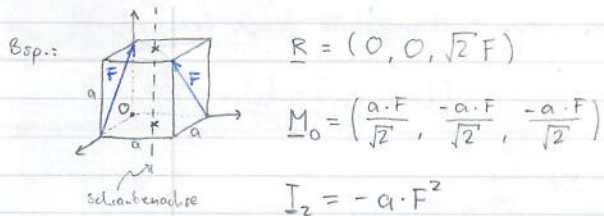 Bsp.:
F
F
a
O
a
a
Schraubenachse
R = (0, 0, √2 F)
M₀ = (a·F/√2, -a·F/√2, -a·F/√2)
I₂ = -a·F²